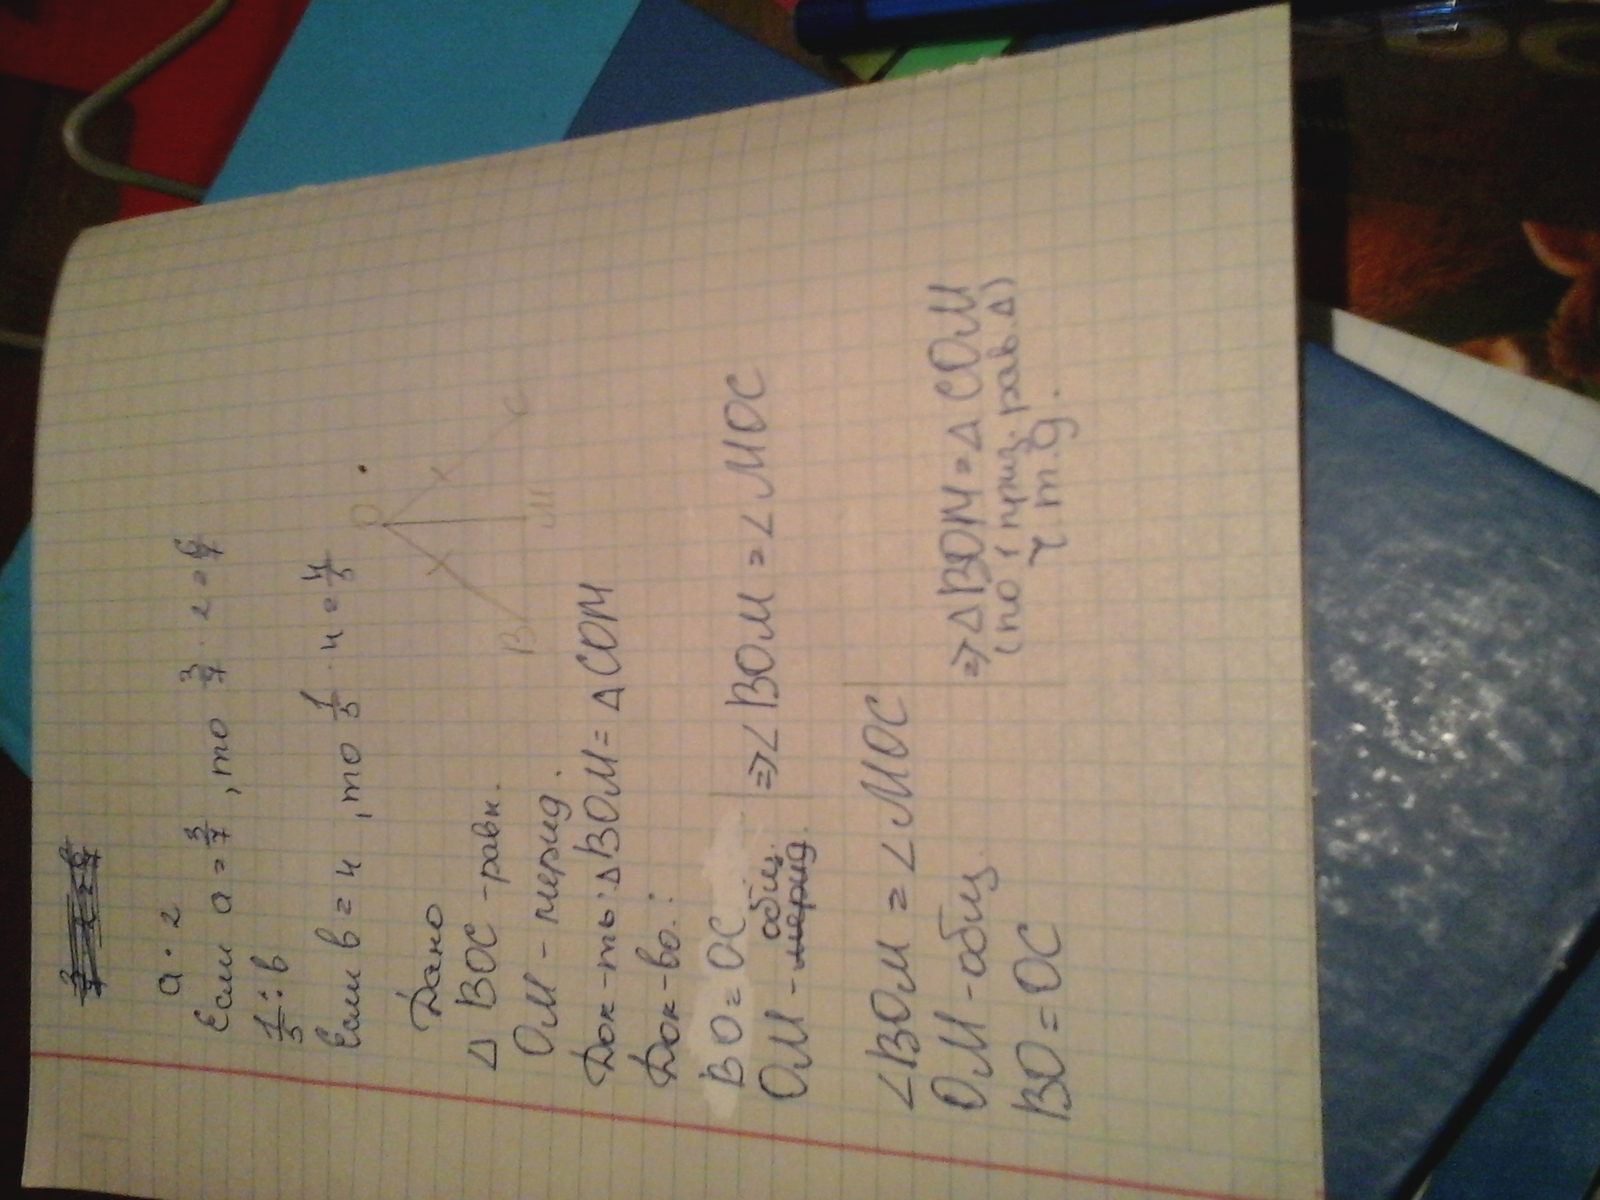 a · 2
Если a = 3/7, то 3/7 · 2 = 6/7
1/5 : b
Если b = 4, то 1/5 · 4 = 4/5
Дано
Δ BOC - равн.
O
B M C
OM - мерид.
Док-ть: Δ BOM = Δ COM
Док-во:
BO = OC
OM - мерид. общ. => ∠ BOM = ∠ MOC
∠BOM = ∠ MOC
OM - общ.
BO = OC
=> Δ BOM = Δ COM
(по 1 приз. рав. Δ)
ч т.д.